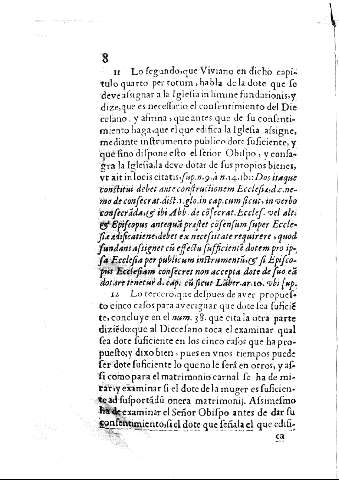 8
11 Lo segundo, que Viviano en dicho capi-
tulo quarto per totum, habla de la dote que se
deve assignar a la Iglesia in limine fundationis, y
dize, que es necessario el consentimiento del Dio
cesano, y afirma, que antes que de su consenti-
miento haga, que el que edifica la Iglesia assigne,
mediante instrumento publico dote suficiente, y
que sino dispone esto el señor Obispo, y consa-
gra la Iglesia, la deve dotar de sus propios bienes,
vt ait in locis citatis, sup. n. 9. à n. 14. ibi: Dos itaque
constitui debet ante constructionem Ecclesiæ d. c. ne-
mo de consecrat. dist. 1. glo. in cap. cum sicut, in verbo
consecrāda, & ibi Abb. de cōsecrat. Eccles. vel alt.
& Episcopus antequā præstet cōsensum super Eccle-
siæ ædificatione, debet ex necessitate requirere, quod
fundans assignet cū effectu sufficientē dotem pro ip-
sa Ecclesia per publicum instrumentū, & si Episco-
pus Ecclesiam consecret non accepta dote de suo eā
dotare tenetur d. cap. cū sicut Laber. ar. 10. vbi sup.
12 Lo tercero, que despues de aver propues-
to cinco casos para averiguar que dote sea suficiē
te, concluye en el num. 38. que cita la otra parte
diziēdo, que al Diecesano toca el examinar qual
sea dote suficiente en los cinco casos que ha pro-
puesto, y dixo bien, pues en vnos tiempos puede
ser dote suficiente lo que no le serà en otros, y as-
si como para el matrimonio carnal se ha de mi-
rar, y examinar si el dote de la muger es suficien-
te ad susportādū onera matrimonij. Assimesmo
ha de examinar el Señor Obispo antes de dar su
consentimiento, si el dote que señala el que edifi-
ca